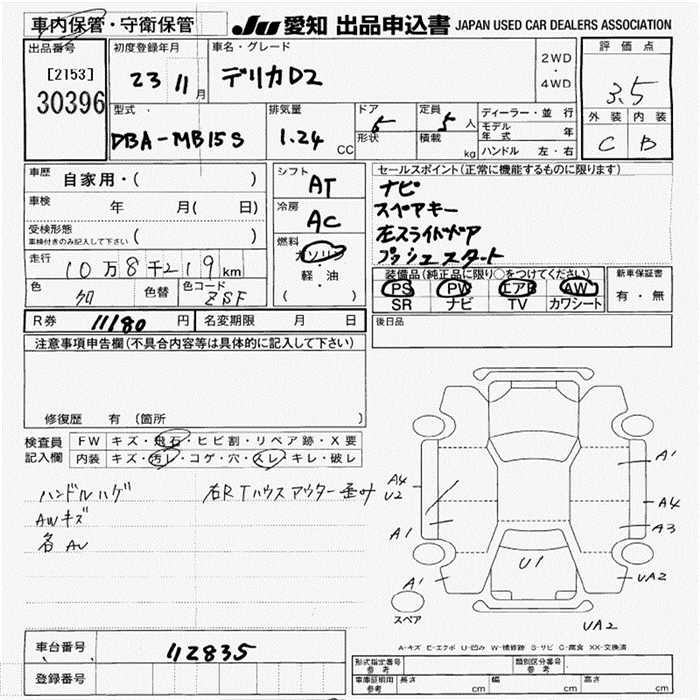 車内保管・守衛保管 JU 愛知 出品申込書 JAPAN USED CAR DEALERS ASSOCIATION
出品番号 初度登録年月 車名・グレード 2WD ・ 4WD 評価点
[2153] 23 11月 デリカD2 3.5
30396
型式 排気量 ドア 5 定員 5人 ディーラー・並行 外装 内装
DBA-MB15S 1.24 CC 形状 積載 kg モデル年式 年 C B
ハンドル 左・右
車歴 自家用・( ) シフト AT セールスポイント(正常に機能するものに限ります)
車検 年 月( 日) 冷房 AC ナビ
スペアキー
受検形態 車検付きのみ記入して下さい ( ) 燃料 ガソリン 左スライドドア
走行 10万8千219km 軽・油 プッシュスタート
色 クロ 色替 色コード ZSF ( ) 装備品(純正品に限り○をつけてください) 新車保証書
PS PW エアB AW 有・無
SR ナビ TV カワシート
R券 11180円 名変期限 月 日 後日品
注意事項申告欄(不具合内容等は具体的に記入して下さい)
修復歴 有 (箇所 )
検査員 FW キズ・飛石・ヒビ割・リペア跡・X要
記入欄 内装 キズ・汚レ・コゲ・穴・スレ・キレ・破レ
ハンドルハゲ 右RTハウスアウター歪み
AWキズ
各AU
A4
U2
A1
A1
A1
A4
A3
U1
UA2
UA2
スペア
A-キズ E-エクボ U-凹み W-補修跡 S-サビ C-腐食 XX-交換済
車台番号 112835
登録番号
形式指定番号 参考 類別区分番号 参考
車庫証明用 参考 長さ cm 幅 cm 高さ cm